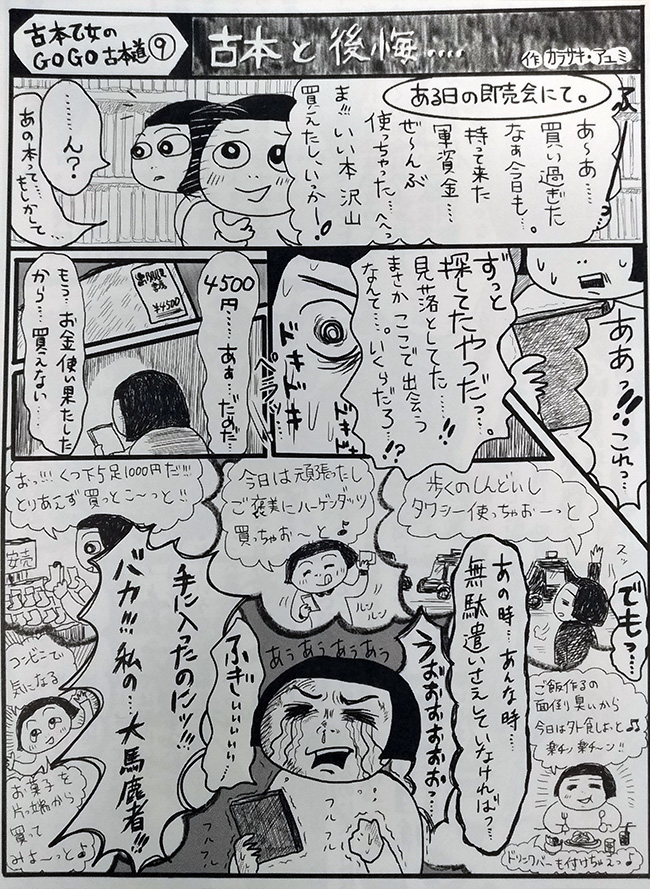 古本乙女の
GOGO古本道⑨
古本と後悔‥‥
作 カラサキ・アユミ
ある日の即売会にて。
ふーっ
あ〜あ……
買い過ぎた
なぁ今日も。
持って来た
軍資金…
ぜ〜んぶ
使っちゃった…へへっ
ま!!いい本沢山
買えたし、いっかー!
………ん?
あの本って…
もしかして…
ああっ!!これっ…
ずっと
探してたやつだっ…。
見せ落としてた……!!
まさかここで出会う
なんて…。いくらだろ…!?
ドキドキ
ドキドキ
ペラッ…
¥4500
4500
円……あぁ…だめだ…
もう…お金使い果たした
から……買えない…
でもっ…
スッ
歩くのしんどいし
タクシー使っちゃおーっと
今日は頑張ったし
ご褒美にハーゲンダッツ
買っちゃお〜と♪
ルンルン
ルンルン
おっ!!!くつ下5足1000円だ!!!
とりあえず買っとこ〜っと!!
安売
あの時…あんな時…
無駄遣いさえしていなければっ…
うおおおおおおっ…
ご飯作るの
面倒臭いから
今日は外食しよっと♪
楽チン楽チーン!!
ドリンクバーも付けちゃえっ♪
あうあうあうあぅ
ふぎぃぃぃぃぃぃ
手に入ったのにッ!!!
バカ!!!私の…大馬鹿者!!
フルフル
フルフル
コンビニで
気になる
お菓子を
片っ端から
買って
みよ〜っと♪